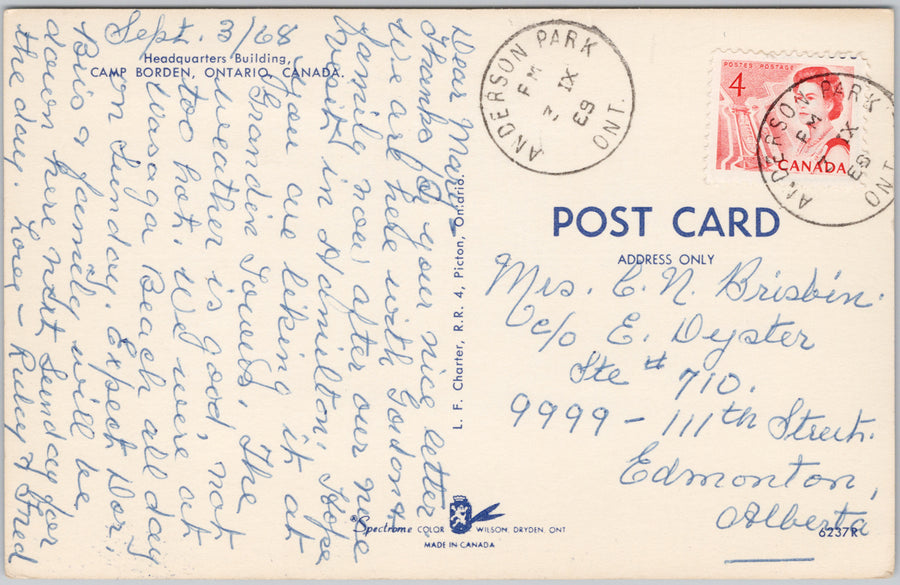 Sept. 3/68
Headquarters Building,
CAMP BORDEN, ONTARIO, CANADA.
Dear Mary,
Thanks for your nice letter.
We are here with Gordon &
family now after our nice
visit in Hamilton. Hope
you are liking it at
Grandin Towers. The
weather is good, not
too hot. We were at
Wasaga Beach all day
on Sunday. Expect Dor,
Bris & family will be
down here next Sunday for
the day. Love - Ruby & Fred
L. F. Charter, R.R. 4, Picton, Ontario.
ANDERSON PARK
PM
IX
ONT.
POSTES POSTAGE
4
CANADA
ANDERSON PARK
PM
IX
ONT
POST CARD
ADDRESS ONLY
Mrs. C. N. Brisbin.
c/o E. Deyster
Ste # 710.
9999 - 111th Street.
Edmonton,
Alberta
Spectrome COLOR WILSON, DRYDEN, ONT
MADE IN CANADA
6237R